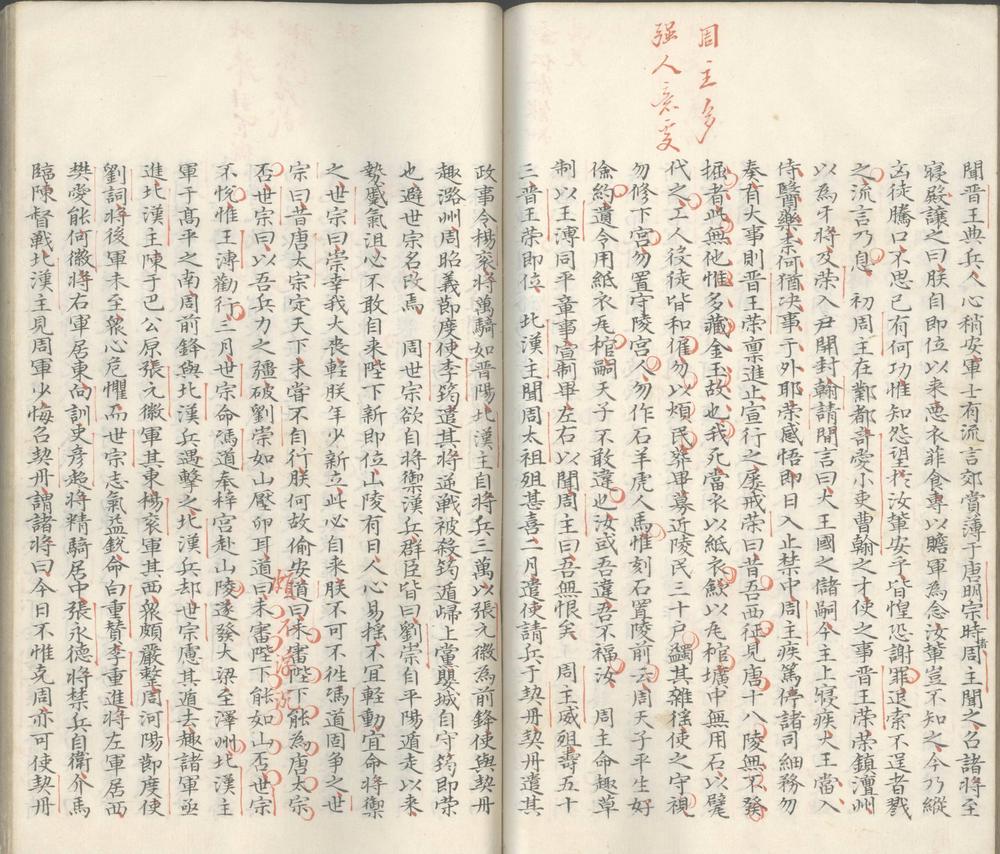 周主多
强人意處
聞晋王典兵人心稍安軍士有流言郊賞薄于唐明宗時者周主聞之召諸將至
寢殿讓之曰朕自即位以來惡衣菲食專以贍軍為念汝軰豈不知之今乃縱
凶徒騰口不思已有何功惟知怨望扵汝軰安乎皆惶恐謝罪退索不逞者戮
之流言乃息　初周主在鄴都竒愛小吏曹翰之才使之事晋王荣荣鎮澶州
以為牙將及荣入尹開封翰請閒言曰大王國之儲嗣今主上寢疾大王當入
侍醫藥柰何猶决事于外耶荣感悟即日入止禁中周主疾篤停諸司細務勿
奏有大事則晋王荣禀進止宣行之屡戒荣曰昔吾西征見唐十八陵無不發
掘者此無他惟多藏金玉故也我死當衣以紙衣歛以瓦棺壙中無用石以甓
代之工人役徒皆和僱勿以煩民葬畢募近陵民三十户蠲其雜徭使之守視
勿修下宫勿置守陵宫人勿作石羊虎人馬惟刻石置陵前云周天子平生好
儉約遺令用紙衣瓦棺嗣天子不敢違也汝或吾違吾不福汝　周主命趣草
制以王溥同平章事宣制畢左右以聞周主曰吾無恨矣　周主威殂壽五十
三晋王荣即位　北漢主聞周太祖殂甚喜二月遣使請兵于契丹契丹遣其
政事令楊衮將萬騎如晋陽北漢主自將兵三萬以張元徽為前鋒使與契丹
趣潞州周昭義節度使李筠遣其將逆戰被殺筠遁歸上黨嬰城自守筠即荣
也避世宗名改焉　周世宗欲自將禦漢兵群臣皆曰劉崇自平陽遁走以来
勢蹙氣沮心不敢自来陛下新即位山陵有日人心易揺不冝輕動宜命將禦
之世宗曰崇幸我大喪輕朕年少新立此必自来朕不可不徃馮道固争之世
宗曰昔唐太宗定天下未嘗不自行朕何故偷安道曰未審陛下能為唐太宗
否世宗曰以吾兵力之彊破劉崇如山壓卵耳道曰未審陛下能如山否世宗
不悅惟王溥勸行三月世宗命馮道奉梓宫赴山陵遂發大梁至澤州北漢主
軍于髙平之南周前鋒與北漢兵遇擊之北漢兵却世宗慮其遁去趣諸軍亟
進北漢主陳于巴公原張元徽軍其東楊衮軍其西衆頗嚴整周河陽節度使
劉詞將後軍未至衆心危懼而世宗志氣益銳命白重贊李重進將左軍居西
樊愛能何徽將右軍居東向訓史彥超將精騎居中張永德將禁兵自衛介馬
臨陳督戰北漢主見周軍少悔召契丹謂諸將曰今日不惟克周亦可使契丹